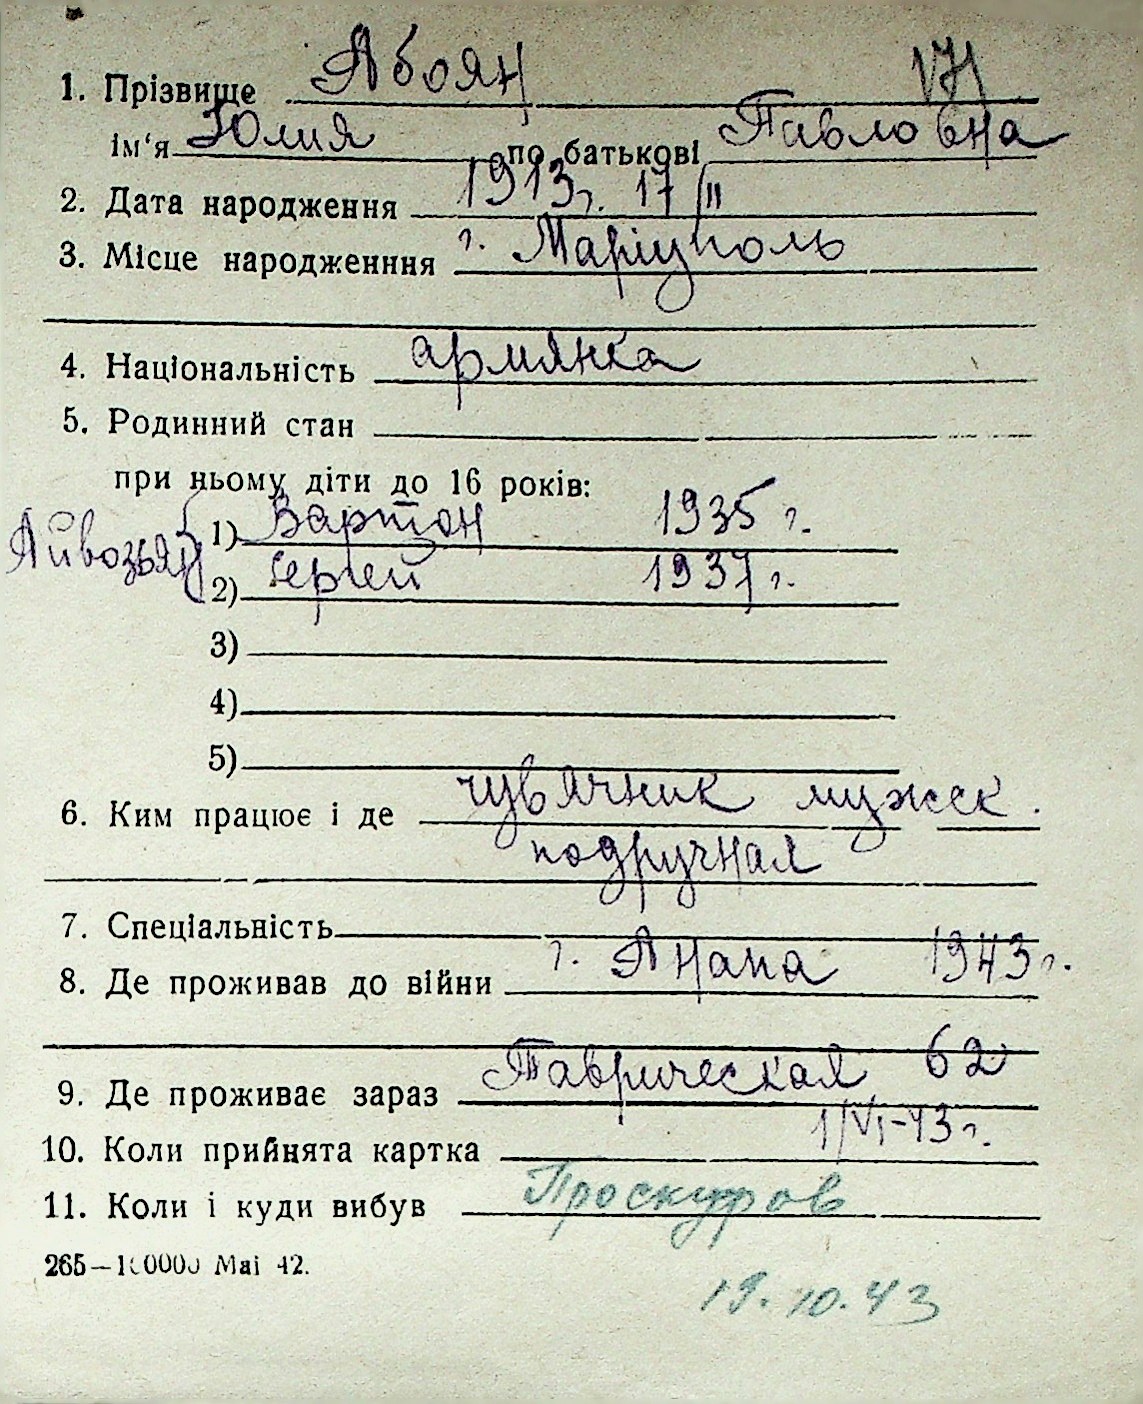 1. Прізвище Абоян
ім‘я Юлия по батькові Павловна
2. Дата народження 1913г. 17/II
3. Місце народженння г. Маріуполь
4. Національність армянка
5. Родинний стан
при ньому діти до 16 років:
Айвозьян 1) Вартан 1935 г.
2) Сергей 1937 г.
3)
4)
5)
6. Ким працює і де чувячник мужск.
подручная
7. Спеціальність
8. Де проживав до війни г. Анапа 1943 г.
9. Де проживає зараз Таврическая 62
10. Коли прийнята картка 1/VI-43 г.
11. Коли і куди вибув Проскуров
265—100000 Маі 42.
19.10.43